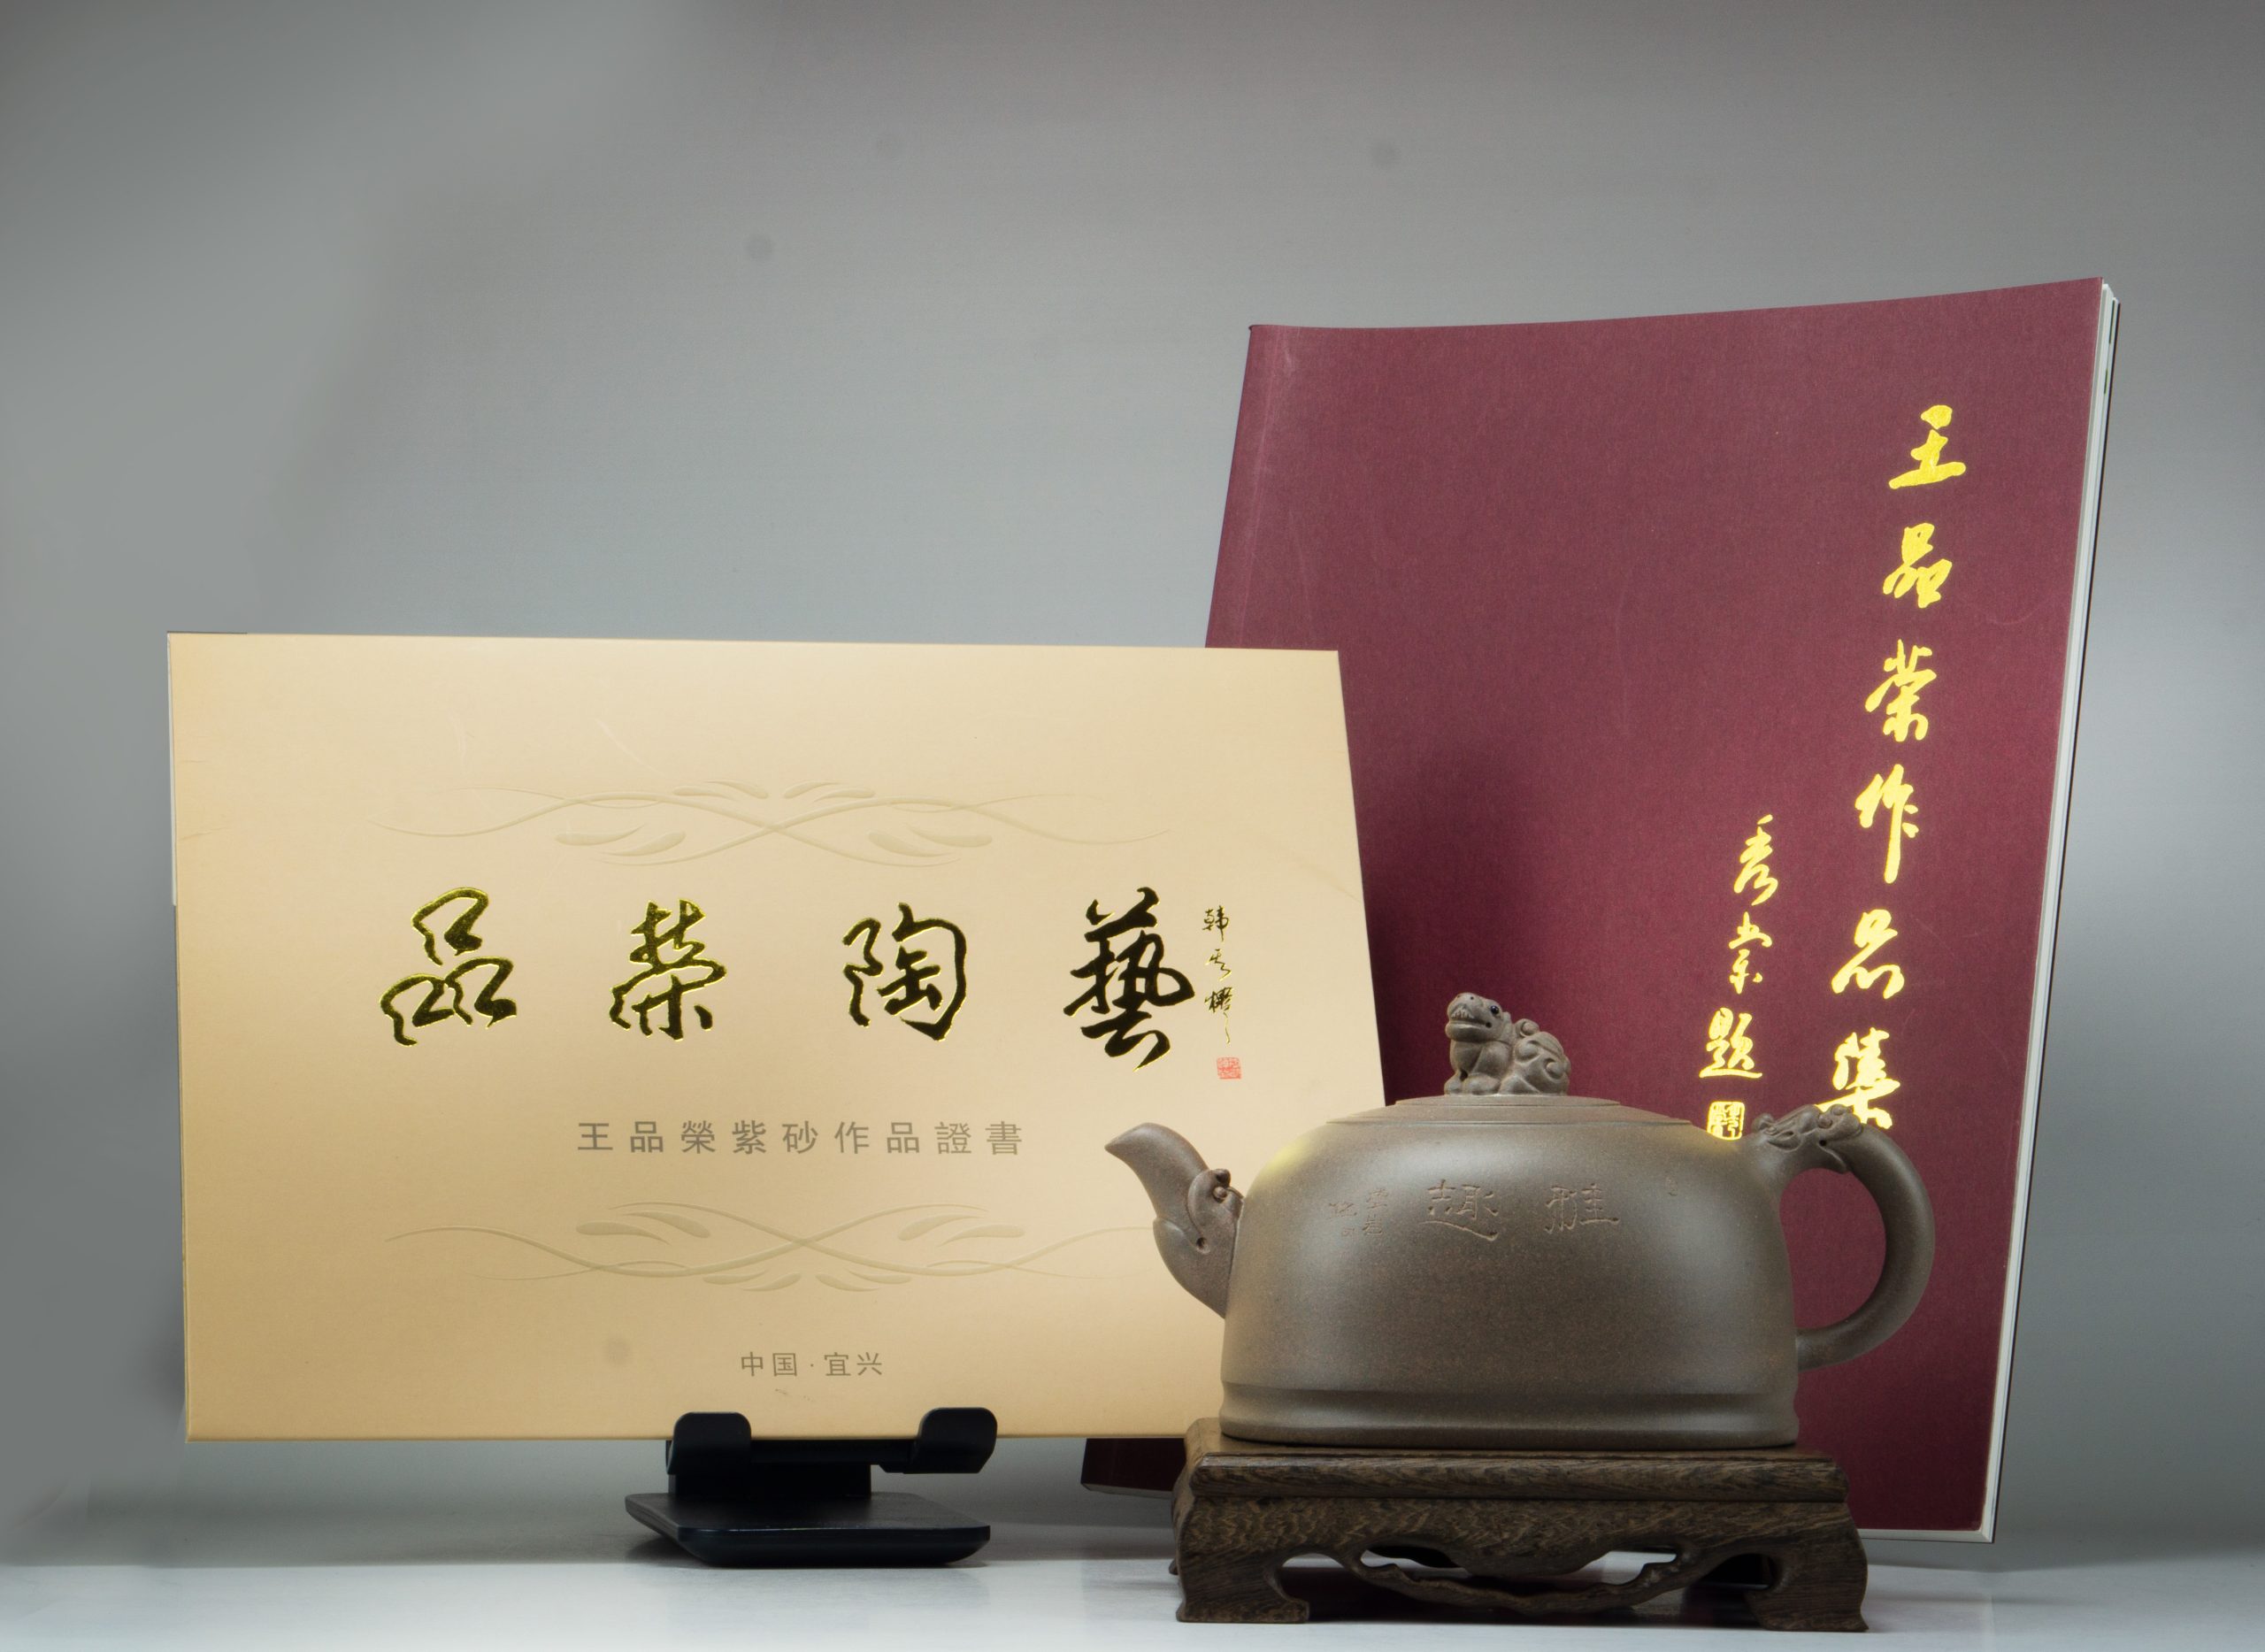 品榮陶藝
王品榮紫砂作品證書
中国·宜兴
王品荣作品集
秀棠題
雅趣